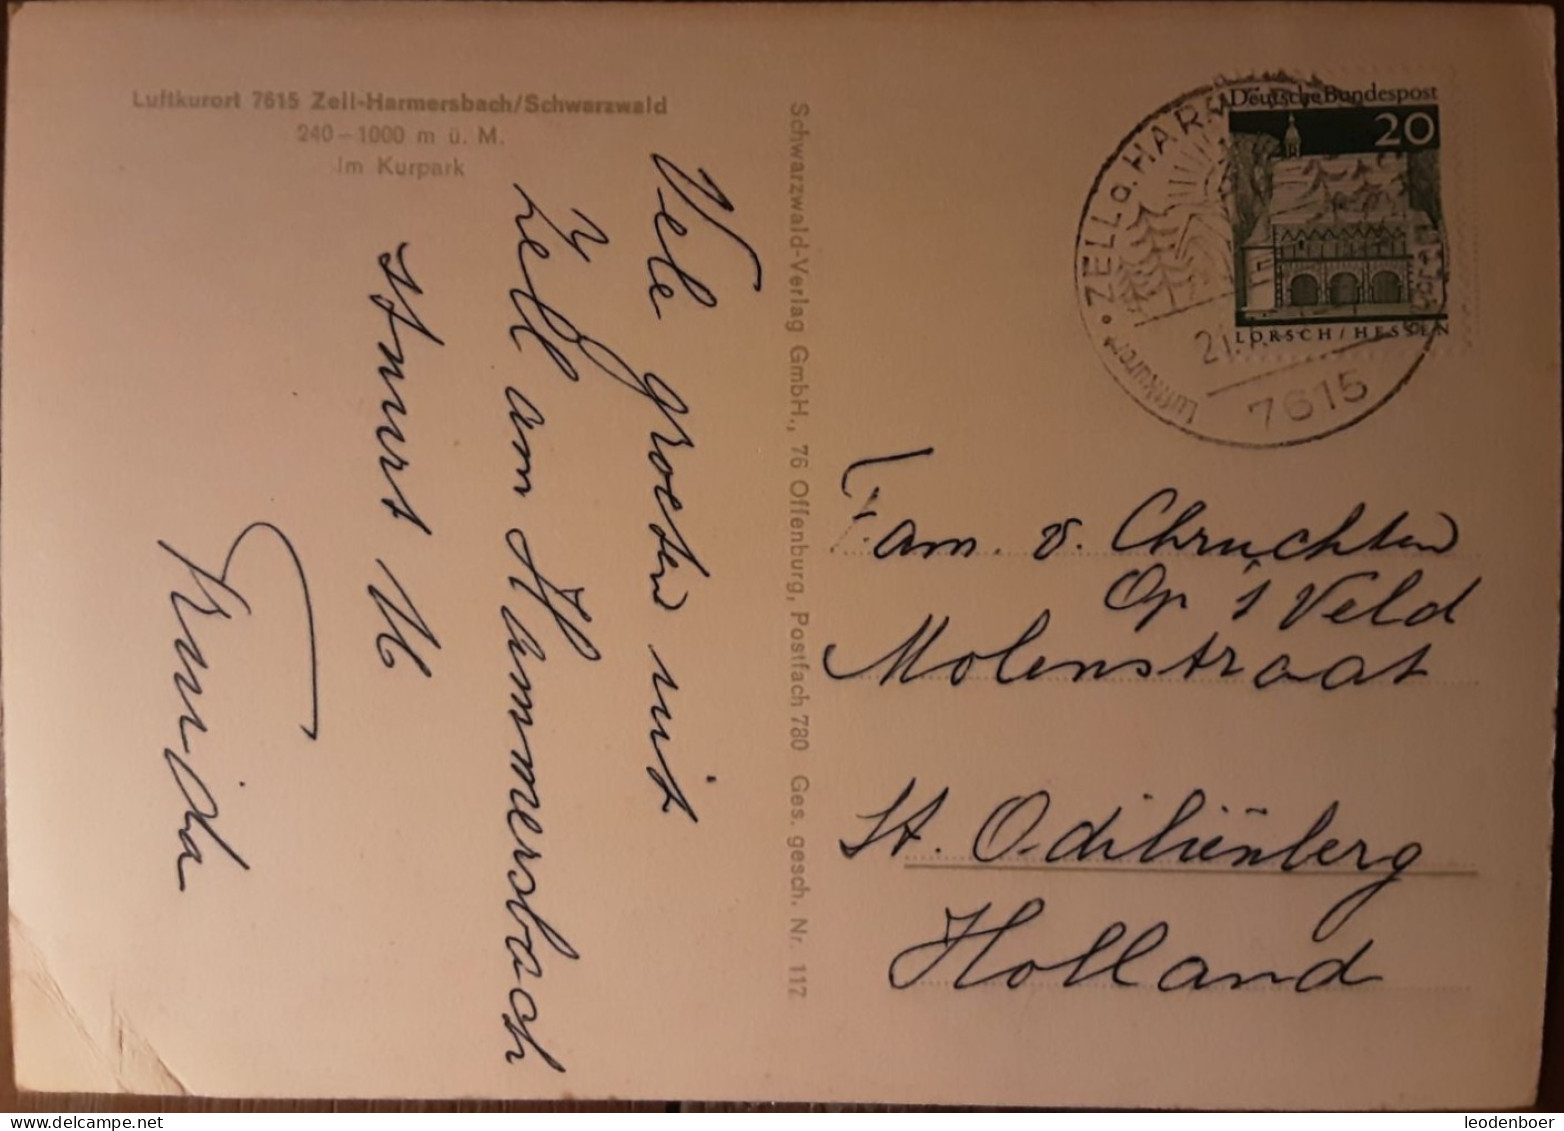 Luftkurort 7615 Zell-Harmersbach/Schwarzwald
240-1000 m ü. M.
Im Kurpark
Vele groeten uit
Zell am Hammersbach
stuurt U
Schwarzwald-Verlag GmbH., 76 Offenburg, Postfach 780 Ges. gesch. Nr. 117
Deutsche Bundespost
20
LORSCH/HESSEN
ZELL a. HARM
Luftkurort
21
7615
Fam. v. Chruchten
Op 't Veld
Molenstraat
St. Odiliënberg
Holland
leodenboer